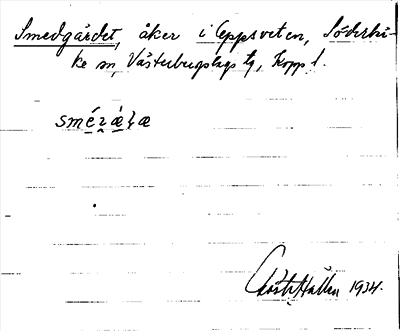 Smedgärdet, åker i Leppsveten, Söderbä-
ke sn, Västerbergslags tg, Kopp l.
smézála
Gösta Hallen 1934.